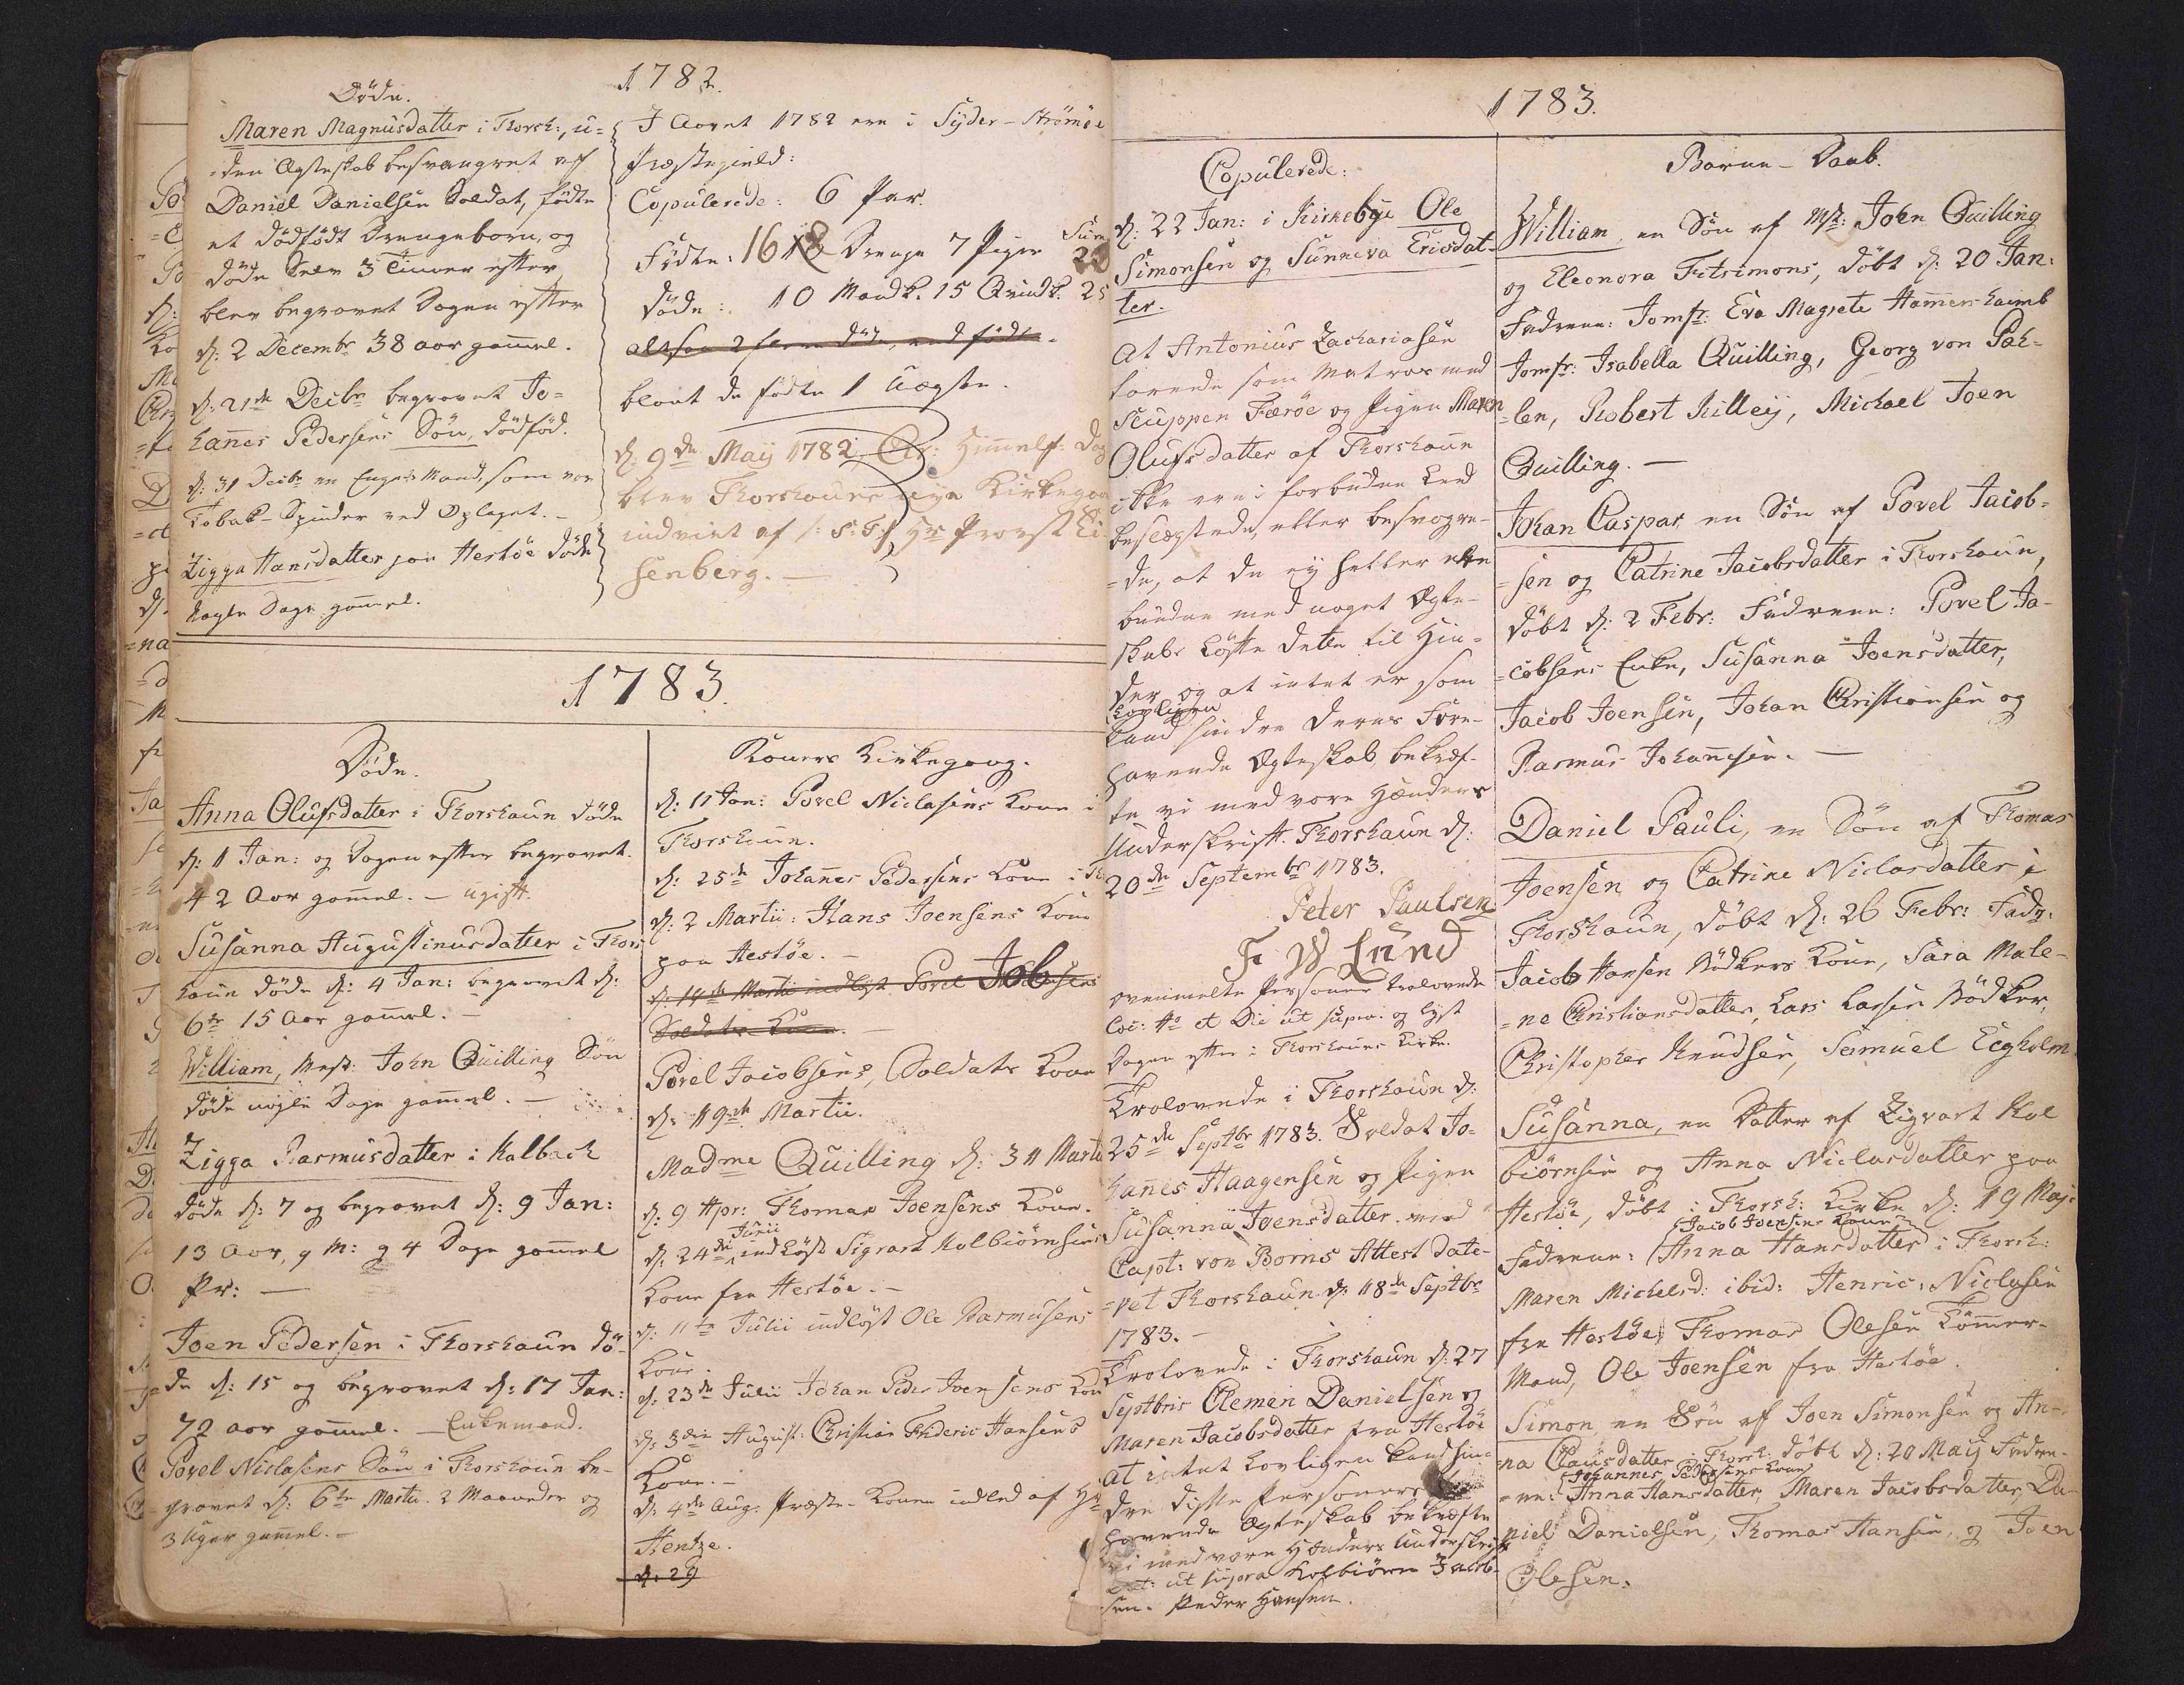 1782.
Døde.
Maren Magnusdatter i Thorsh:, u=
=den Ægteskab besvangret af
Daniel Danielsen Soldat, fødte
et dødfødt Drengebarn, og
døde Selv 3 Timer efter,
blev begravet Dagen efter
d: 2 Decembr 38 aar gammel.
d: 21de Decbr begravet Jo=
hannes Pedersens Søn, dødfød.
d: 31 Decbr en Engels Mand, som var
Tobak-Spinder ved Oplaget. -
Zigga Hansdatter paa Hestöe døde
Nogle Dage gammel.
I Aaret 1782 ere i Syder-Strömöe
Præstegield:
Copulerede: 6 Par.
Fødte: 16 Drenge 7 Piger
Døde: 10 Mandk. 15 Qvindk. 25
altsaa 2 flere døde, end fødte.
blant de fødte 1 uægte.
d: 9de Maij 1782 Chr: Himmelf: Dag
blev Thorshauns nye Kirkegaa
indviet af Hr Provst Ei
senberg. -
1783.
Døde.
Anna Olufsdatter i Thorshaun døde
d: 1 Jan: og Dagen efter begravet.
42 Aar gammel. - ugift.
Susanna Augustinusdatter i Thors
haun døde d: 4 Jan: begravet d:
6te 15 Aar gammel. -
William, Msr: John Quilling Søn
døde nogle Dage gammel. -
Zigga Rasmusdatter i Kalbach
døde d: 7 og begravet d: 9 Jan:
13 Aar, 9 M: og 4 Dage gammel
Pr: -
Joen Pedersen i Thorshaun dø-
de d: 15 og begravet d: 17 Jan:
72 aar gammel. - Enkemand.
Povel Niclasens Søn i Thorshaun be-
gravet d: 6te Martii. 2 Maaneder og
3 Uger gammel. -
Koners Kirkegang.
d: 11 Jan: Povel Niclasens Kone i
Thorshaun.
d: 25de Johannes Pedersens Kone i Th
d: 2 Martii: Hans Joensens Kone
paa Hestöe. -
d: 14de Martii indløst Povel Jobsens
Soldats Kone.
Povel Jacobsens, Soldats Kone
d: 19de Martii.
Madme Quilling d: 31 Marti
d: 9 Apr: Thomas Joensens Kone.
Junii
d: 24de indløst Sigvart Kolbiörnsens
Kone fra Hestöe. -
d: 11te Julii indløst Ole Rasmusens
Kone.
d: 23de Julii Johan Peder Joensens Kon
d: 3die August: Christian Frideric Hansens
Kone. -
d: 4de Aug: Præste-Konen indled af Hr
Hentze.
d: 29
1783.
Copulerede:
d: 22 Jan: i Kirkebye Ole
Simonsen og Sunneva Ericsdat-
ter.
At Antonius Zachariasen
farende som Matros med
Scuppen Færöe og Pigen Maren
Olufsdatter af Thorshaun
ikke ere i forbudne Leed
beslægtede, eller besvogre-
=de, at de ey heller ere
bundne med noget Ægte-
skabs Løfte dette til Hin-
der og at intet er som
Lovligen
kand hindre deres Fore-
havende Ægteskab bekræf-
te vi med vore Hænders
Underskrift. Thorshaun d:
20de Septembr 1783.
Peter Paulsen
F W Lund
ovenmelte Personer trolovede
Loc: Ho et Die ut supra: og lyst
Dagen efter i Thorshauns Kirke.
Trolovede i Thorshaun d:
25de Septbr 1783. Soldat Jo-
hannes Haagensen og Pigen
Susanna Joensdatter med
Capt: von Borns Attest date-
=ret Thorshaun d: 18de Septbr
1783. -
Trolovede i Thorshaun d: 27
Septbris Clemen Danielsen og
Maren Jacobsdatter fra Hestöe
at intet Lovligen kand hin-
dre disse Personers
havende Ægteskab bekræfte
vi med vore Hænders Underskrift
ut supra Kolbiörn Jacob-
sen. Peder Hansen.
Börne-Daab.
William, en Søn af Msr: John Quilling
og Eleonora Fitsimons, døbt d: 20 Jan:
Fadrene: Jomfr: Eva Magrete Hammershaimb
Jomfr: Isabella Quilling, Georg von Pah-
=len, Robert Killey, Michael Joen
Quilling. -
Johan Caspar en Søn af Povel Jacob-
=sen og Catrine Jacobsdatter i Thorshaun,
døbt d: 2 Febr: Fadrene: Povel Ja-
=cobsens Enke, Susanna Joensdatter,
Jacob Joensen, Johan Christiansen og
Rasmus Johannesen. -
Daniel Pauli, en Søn af Thomas
Joensen og Catrine Niclasdatter i
Thorshaun, døbt d: 26 Febr: Fadr:
Jacob Hansen Bødkers Kone, Sara Male-
=ne Christiansdatter, Lars Larsen Bødker,
Christopher Knudsen, Samuel Eegholm.
Susanna, en Datter af Zigvart Kol
biörnsen og Anna Niclasdatter paa
Hestöe, døbt i Thorsh: Kirke d: 19 Maj:
Jacob Joensens Kone
Fadrene: Anna Hansdatter i Thorsh:
Maren Michelsd: ibid: Henric Niclasen
fra Hestöe, Thomas Olesen Tømmer-
Mand, Ole Joensen fra Hestöe.
Simon en Søn af Joen Simonsen og An-
na Clausdatter i Thorsh: døbt d: 20 Maij Fadre-
Johannes Pedersens Kone
=ne: Anna Hansdatter, Maren Jacobsdatter, Da-
niel Danielsen, Thomas Hansen, og Joen
Olesen.